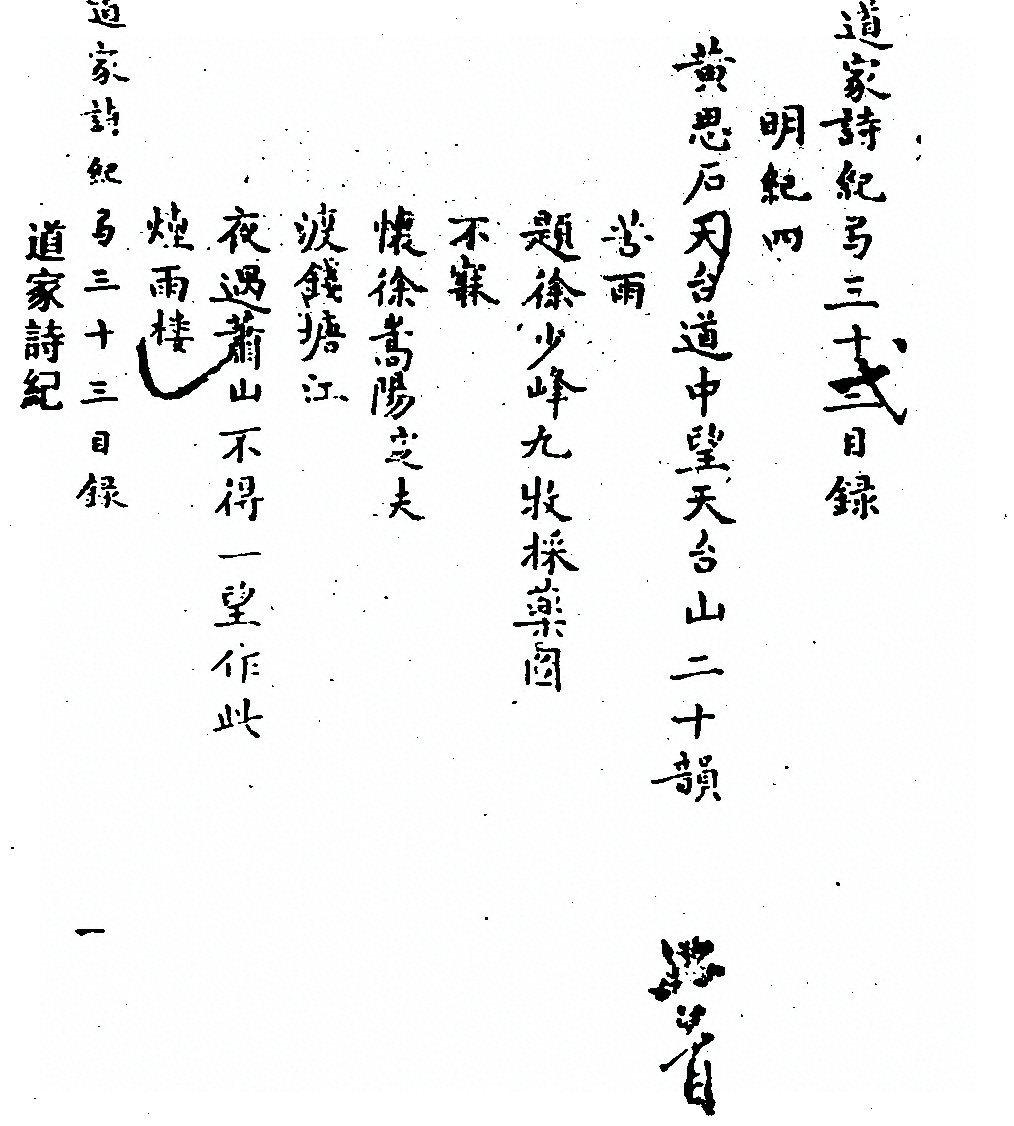 道家詩紀弓三十弍目録
明紀四
黄思石天台道中望天台山二十韻
雨
題徐少峰九牧採藥圖
不寐
懷徐嵩陽定夫
渡錢塘江
夜過蕭山不得一望作此
煙雨楼
道家詩紀弓三十三目録
一
道家詩紀
首